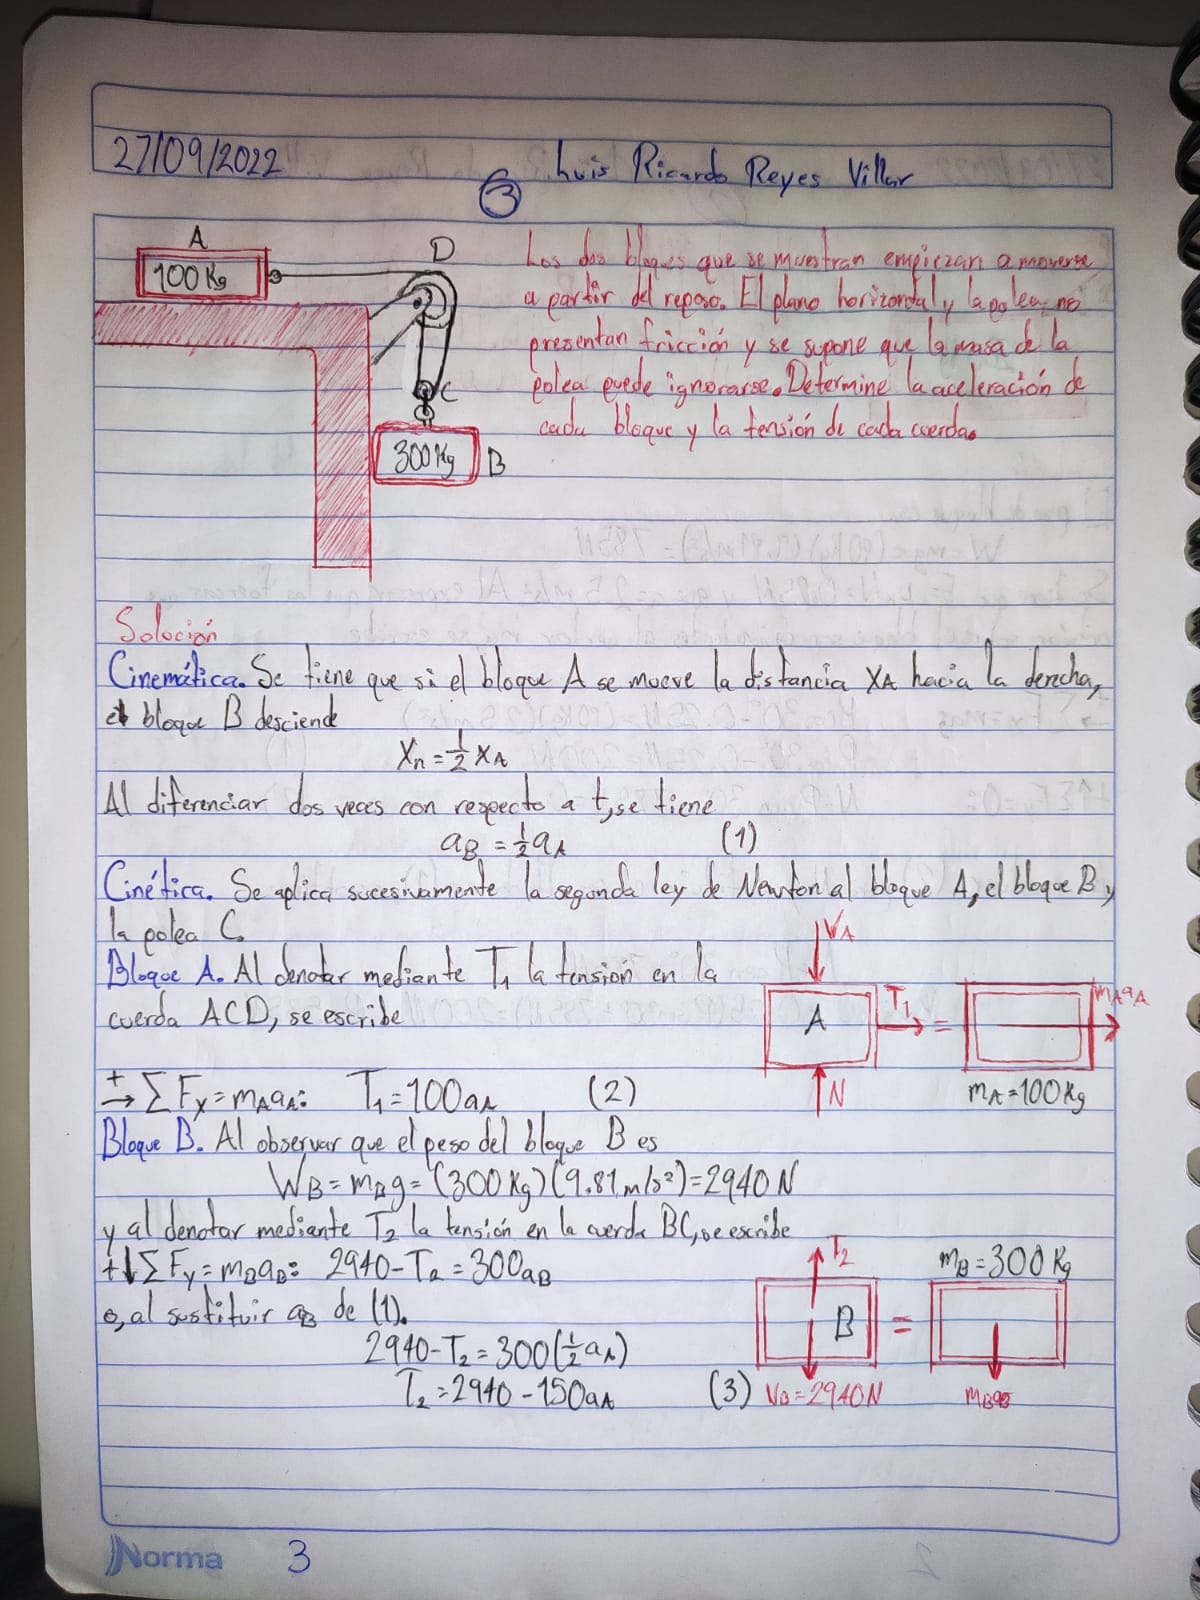 27/09/2022
Luis Ricardo Reyes Villar
3
A
100 Kg
D
C
300 Kg
B
Los dos bloques que se muestran empiezan a moverse
a partir del reposo. El plano horizontal y la polea no
presentan fricción y se supone que la masa de la
polea puede ignorarse. Determine la aceleración de
cada bloque y la tensión de cada cuerda.
Solución
Cinemática. Se tiene que si el bloque A se mueve la distancia XA hacia la derecha,
el bloque B desciende
Xn = 1/2 XA
Al diferenciar dos veces con respecto a t, se tiene
aB = 1/2 aA (1)
Cinética. Se aplica sucesivamente la segunda ley de Newton al bloque A, el bloque B y
la polea C.
Bloque A. Al denotar mediante T1 la tensión en la
cuerda ACD, se escribe
WA
A
T1
=
mAaA
N
mA = 100 Kg
+→ ΣFx = mAaA: T1 = 100aA (2)
Bloque B. Al observar que el peso del bloque B es
WB = mBg = (300 Kg)(9.81 m/s²) = 2940 N
y al denotar mediante T2 la tensión en la cuerda BC, se escribe
+↓ΣFy = mBaB: 2940 - T2 = 300aB
o, al sustituir aB de (1).
2940 - T2 = 300(1/2 aA)
T2 = 2940 - 150aA (3)
T2
mB = 300 Kg
B
=
WB = 2940 N
mBaB
Norma
3